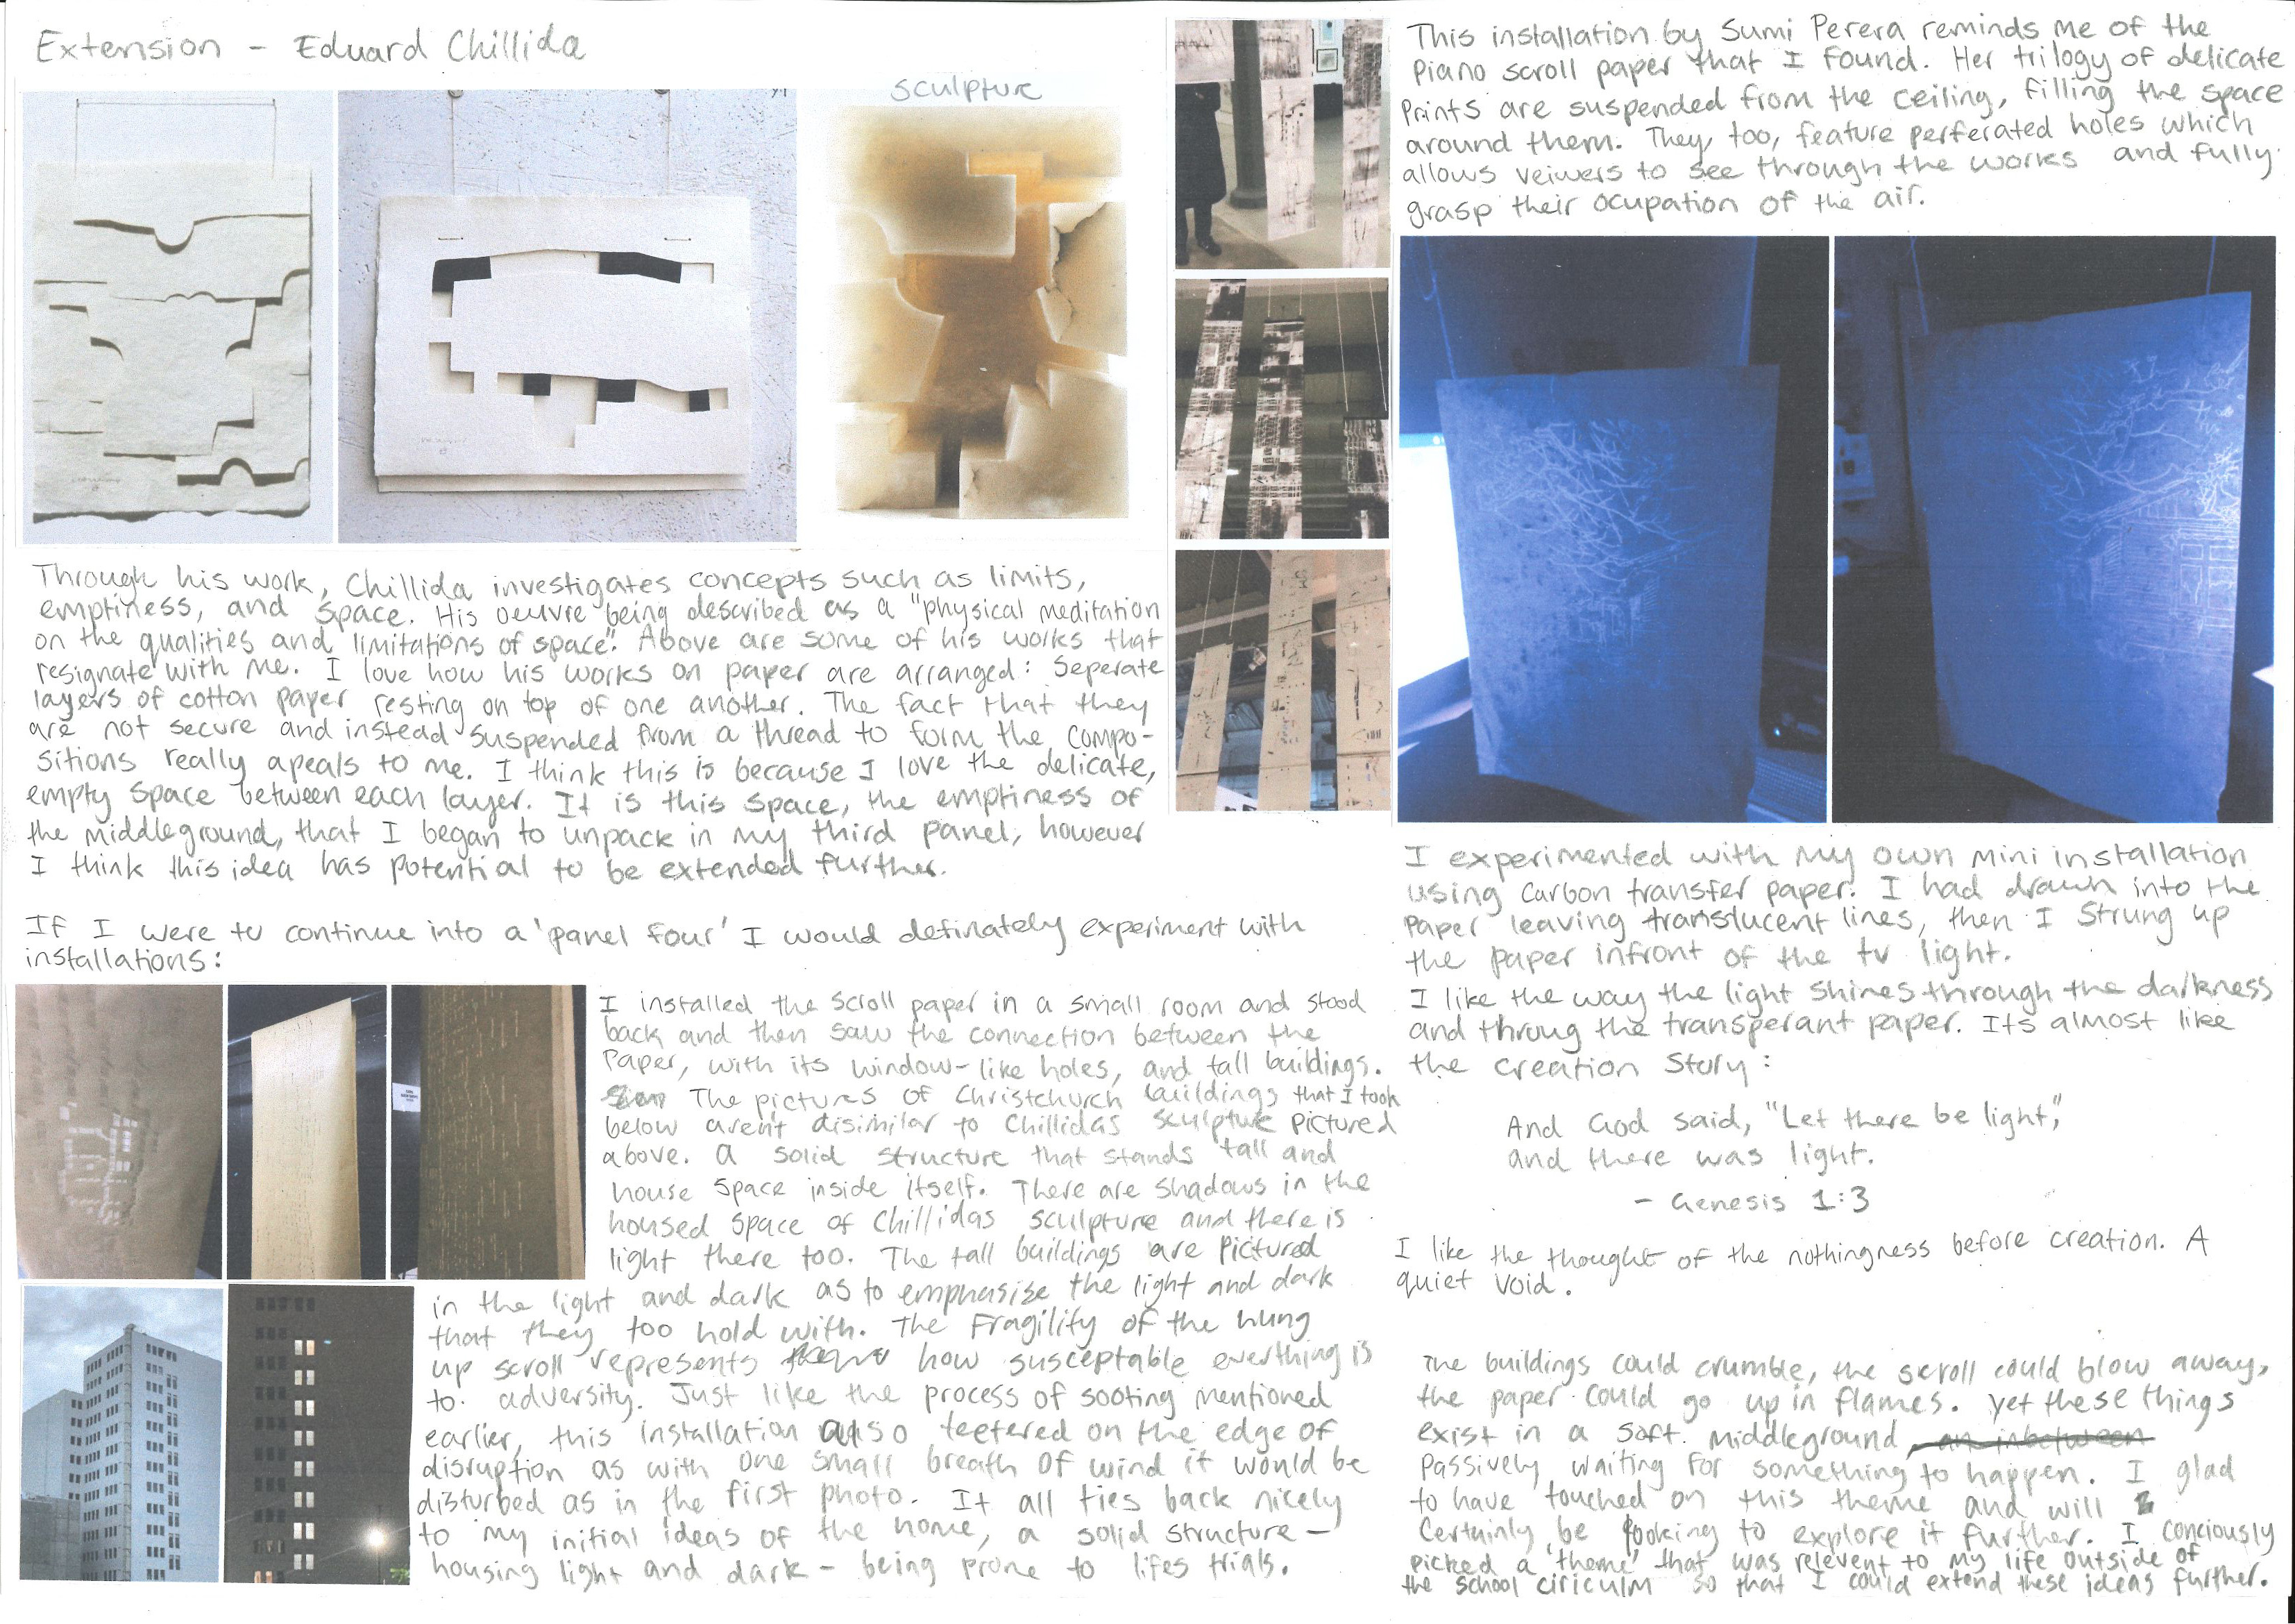 Extension - Eduard Chillida
sculpture
Through his work, Chillida investigates concepts such as limits,
emptiness, and space. His oeuvre being described as a "physical meditation
on the qualities and limitations of space". Above are some of his works that
resignate with me. I love how his works on paper are arranged: Seperate
layers of cotton paper resting on top of one another. The fact that they
are not secure and instead suspended from a thread to form the compo-
sitions really apeals to me. I think this is because I love the delicate,
empty space between each layer. It is this space, the emptiness of
the middleground, that I began to unpack in my third panel, however
I think this idea has potential to be extended further.
If I were to continue into a 'panel four' I would definately experiment with
installations:
I installed the scroll paper in a small room and stood
back and then saw the connection between the
paper, with its window-like holes, and tall buildings.
The pictures of Christchurch buildings that I took
below aren't disimilar to Chillidas sculpture pictured
above. A solid structure that stands tall and
house space inside itself. There are shadows in the
housed space of Chillidas sculpture and there is
light there too. The tall buildings are pictured
in the light and dark as to emphasise the light and dark
that they too hold with. The Fragility of the hung
up scroll represents how susceptable everthing is
to adversity. Just like the process of sooting mentioned
earlier, this installation also teetered on the edge of
disruption as with one small breath of wind it would be
disturbed as in the first photo. It all ties back nicely
to my initial ideas of the home, a solid structure -
housing light and dark - being prone to lifes trials.
This installation by Sumi Perera reminds me of the
Piano scroll paper that I found. Her trilogy of delicate
Prints are suspended from the ceiling, filling the space
around them. They, too, feature perferated holes which
allows veiwers to see through the works and fully
grasp their ocupation of the air.
I experimented with my own mini installation
using carbon transfer paper. I had drawn into the
paper leaving translucent lines, then I strung up
the paper infront of the tv light.
I like the way the light shines through the darkness
and throug the transperant paper. Its almost like
the creation story:
And God said, "Let there be light,"
and there was light.
- Genesis 1:3
I like the thought of the nothingness before creation. A
quiet void.
The buildings could crumble, the scroll could blow away,
the paper could go up in flames. Yet these things
exist in a soft middleground, an inbetween
passively waiting for something to happen. I glad
to have touched on this theme and will
certainly be looking to explore it further. I conciously
picked a 'theme' that was relevent to my life outside of
the school ciriculm so that I could extend these ideas further.